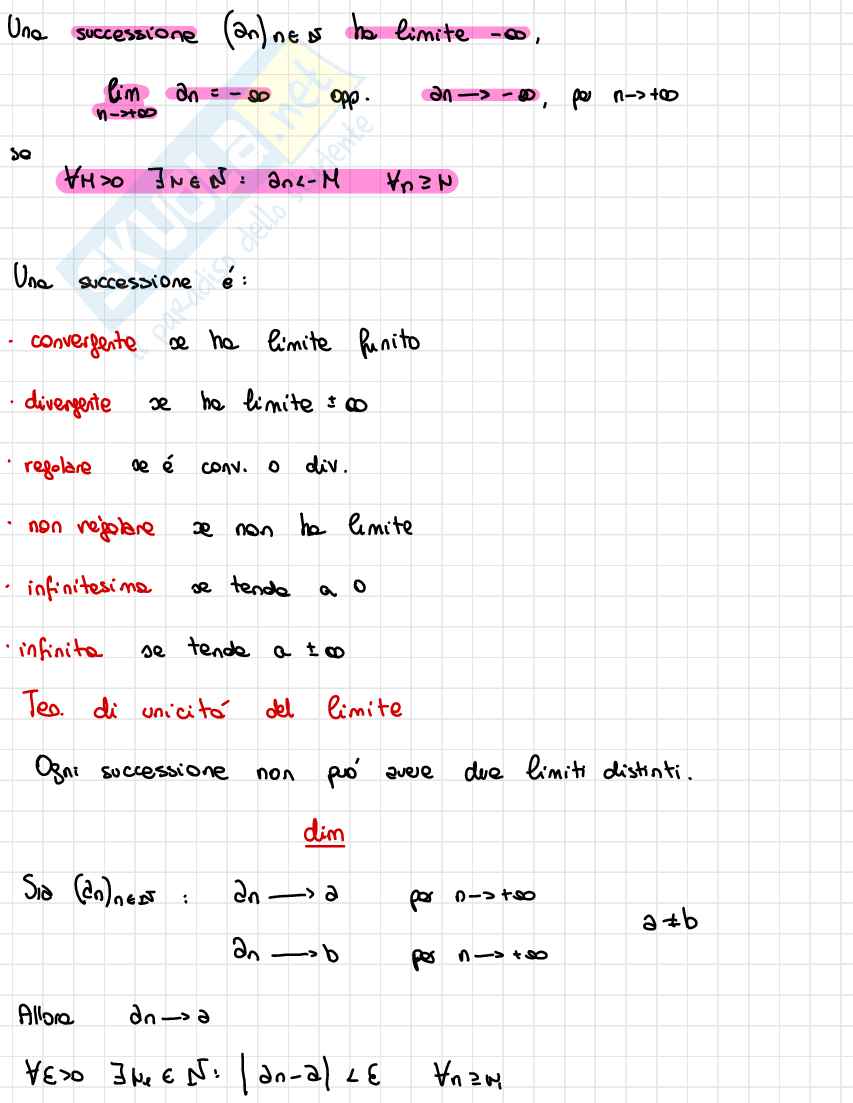 Una successione (an)n∈ℕ ha limite -∞,
lim an = -∞ opp. an → -∞, per n→+∞
n→+∞
se
∀M>0 ∃N∈ℕ: an<-M ∀n≥N
Una successione é:
· convergente se ha limite finito
· divergente se ha limite ±∞
· regolare se é conv. o div.
· non regolare se non ha limite
· infinitesima se tende a 0
· infinita se tende a ±∞
Teo. di unicitá del limite
Ogni successione non puó avere due limiti distinti.
dim
Sia (an)n∈ℕ : an → a per n→+∞
a≠b
an → b per n→+∞
Allora an → a
∀ε>0 ∃Nε∈ℕ: |an-a|<ε ∀n≥N
SKUOLA.net
il paradiso dello studente